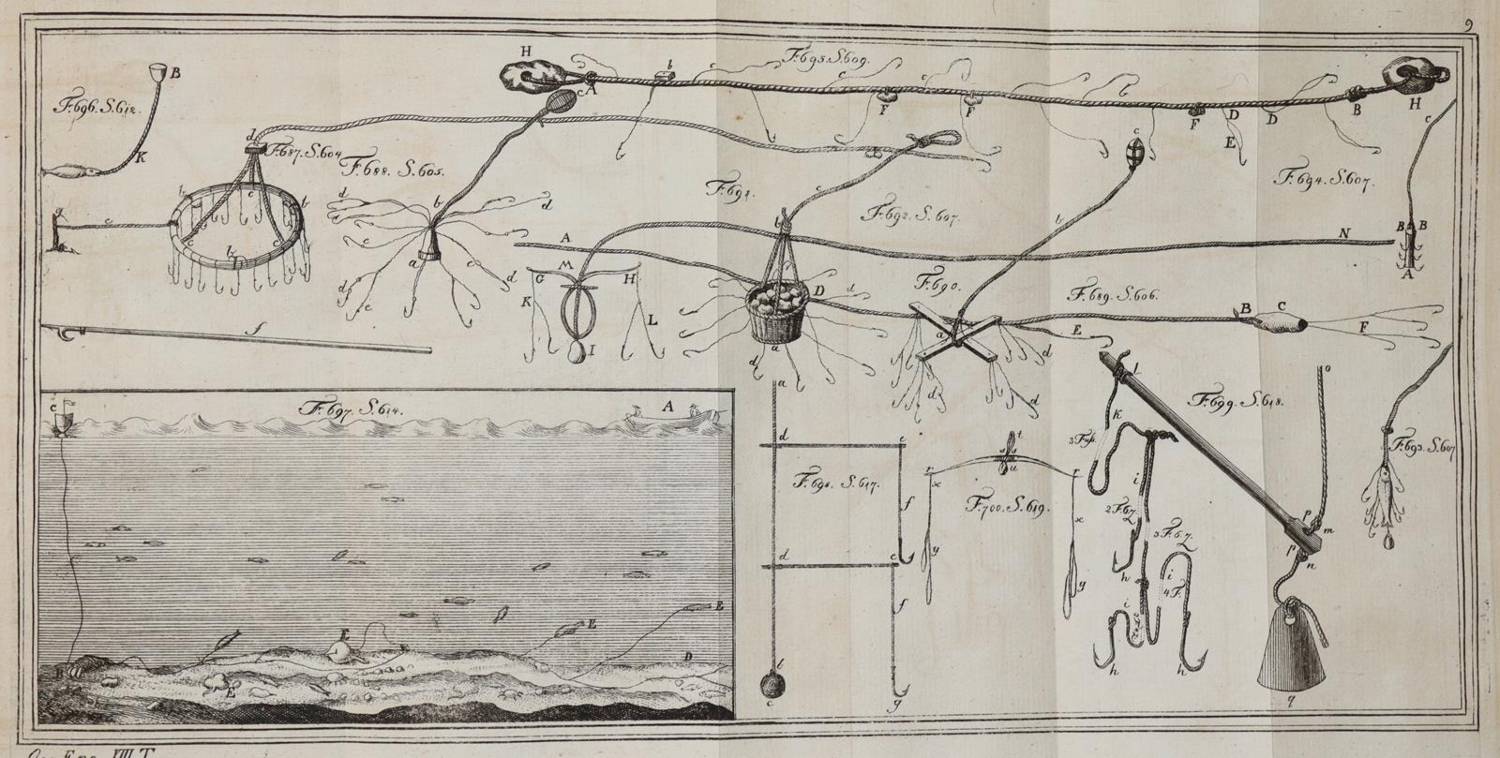 9
F. 695. S. 609.
H
b
c
c
c
c
b
A
F
F
F
D
D
E
B
H
F. 696. S. 612.
B
K
d
F. 687. S. 604.
F. 688. S. 605.
c
c
c
F. 691.
F. 692. S. 607.
F. 694. S. 607.
g
e
b
b
c
c
b
d
d
b
c
b
b
A
N
B
B
A
a
c
c
d
d
G
M
H
K
L
I
D
d
F. 690.
F. 689. S. 606.
a
E
B
C
F
f
a
d
d
d
d
F. 697. S. 614.
c
A
B
E
E
E
E
D
a
d
e
F. 698. S. 617.
f
d
e
f
b
c
g
t
u
r
r
x
x
F. 700. S. 619.
y
y
l
K
F. 699. S. 618.
o
F. 693. S. 607
i
h
i
i
4 F.
h
h
p
m
p
n
q